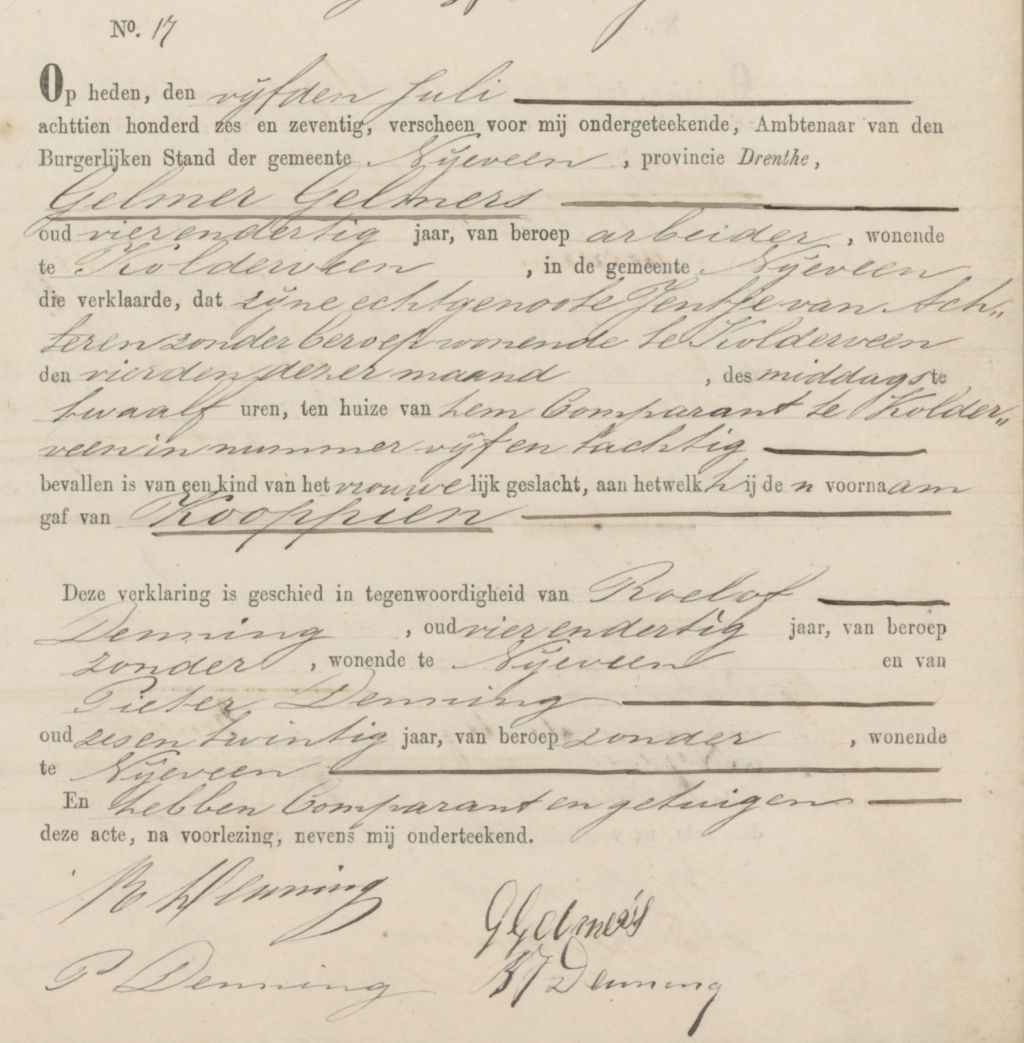 No. 17
Op heden, den vijfden Juli
achttien honderd zes en zeventig, verscheen voor mij ondergeteekende, Ambtenaar van den
Burgerlijken Stand der gemeente Nijeveen, provincie Drenthe,
Gelmer Gelmers
oud vierendertig jaar, van beroep arbeider, wonende
te Kolderveen, in de gemeente Nijeveen
die verklaarde, dat zijne echtgenoote Jentje van Ach„
teren zonder beroep wonende te Kolderveen
den vierden dezer maand, des middags te
twaalf uren, ten huize van hem Comparant te Kolder„
veen in nummer vijf en tachtig
bevallen is van een kind van het vrouwelijk geslacht, aan hetwelk hij den voornaam
gaf van Kooppien
Deze verklaring is geschied in tegenwoordigheid van Roelof
Denning, oud vierendertig jaar, van beroep
zonder, wonende te Nijeveen en van
Pieter Denning
oud zesentwintig jaar, van beroep zonder, wonende
te Nijeveen
En hebben Comparant en getuigen
deze acte, na voorlezing, nevens mij onderteekend.
R Denning
G Gelmers
P Denning
Denning